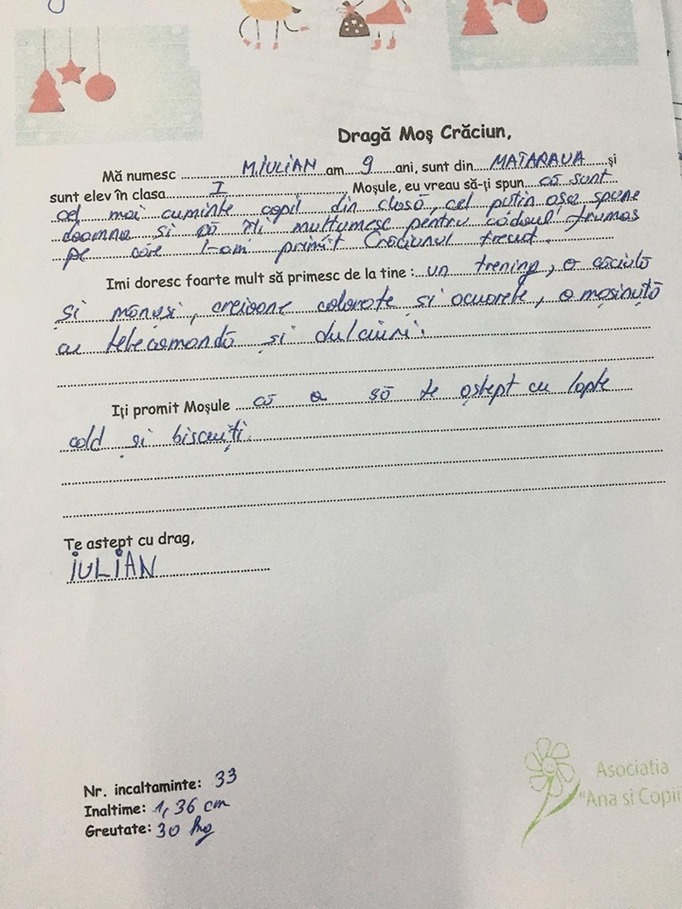 Dragă Moș Crăciun,
Mă numesc M.IULIAN am 9 ani, sunt din MATARAUA și
sunt elev în clasa I , Moșule, eu vreau să-ți spun că sunt
cel mai cuminte copil din clasă, cel putin asa spune
doamna si să îti multumesc pentru cadoul frumos
pe care l-am primit Crăciunul trecut.
Imi doresc foarte mult să primesc de la tine : un trening, o căciulă
și mănuși, creioane colorate si acuarele, o mașinuță
cu telecomandă și dulciuri.
Iți promit Moșule că o să te aștept cu lapte
cald și biscuiți.
Te astept cu drag,
IULIAN
Nr. incaltaminte: 33
Inaltime: 1,36 cm
Greutate: 30 kg
Asociatia
"Ana si Copii